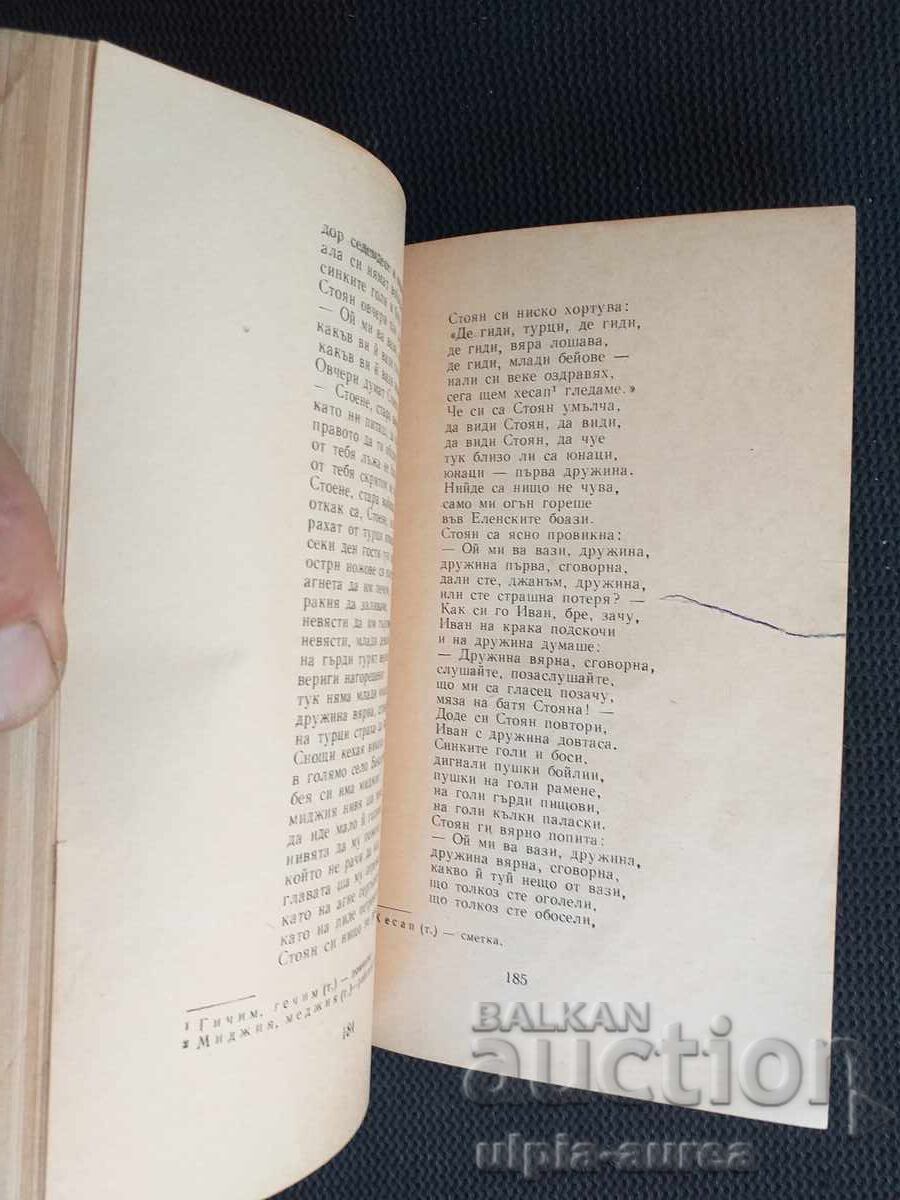 дор
ала си нямат
синките голи и
Стоян овчери
— Ой ми ва вази,
какъв ви й вази
какъв ви й вази
Овчери думат
— Стоене, стара
като ни питаш,
правото да ти
от тебя лъжа не
от тебя скритом
Стоене, стара
откак са, Стоене,
рахат от турци
секи ден гости
остри ножове са
агнета да им
ракия да
невясти да им
невясти, млади
на гърди турят
вериги нагорещени
тук няма млади
дружина вярна,
на турци страха да
Снощи кехая
в голямо село
бея си има
миджия нивя ша
да иде мало й
нивята да му
който не рачи да
главата ша му
като на агне
като на пиле
Стоян си нищо не
1 Гичим, гечим (т.) —
2 Миджия, меджия (т.) —
184
Стоян си ниско хортува:
«Де гиди, турци, де гиди,
де гиди, вяра лошава,
де гиди, млади бейове —
нали си веке оздравях,
сега щем хесап¹ гледаме.»
Че си са Стоян умълча,
да види Стоян, да види,
да види Стоян, да чуе
тук близо ли са юнаци,
юнаци — първа дружина.
Нийде са нищо не чува,
само ми огън гореше
във Еленските боази.
Стоян са ясно провикна:
— Ой ми ва вази, дружина,
дружина първа, сговорна,
дали сте, джанъм, дружина,
или сте страшна потеря? —
Как си го Иван, бре, зачу,
Иван на крака подскочи
и на дружина думаше:
— Дружина вярна, сговорна,
слушайте, позаслушайте,
що ми са гласец позачу,
мяза на батя Стояна! —
Доде си Стоян повтори,
Иван с дружина довтаса.
Синките голи и боси,
дигнали пушки бойлии,
пушки на голи рамене,
на голи гърди пищови,
на голи кълки паласки.
Стоян ги вярно попита:
— Ой ми ва вази, дружина,
дружина вярна, сговорна,
какво й туй нещо от вази,
що толкоз сте оголели,
що толкоз сте обосели,
Хесап (т.) — сметка.
185
BALKAN
auction
ulpia-aurea